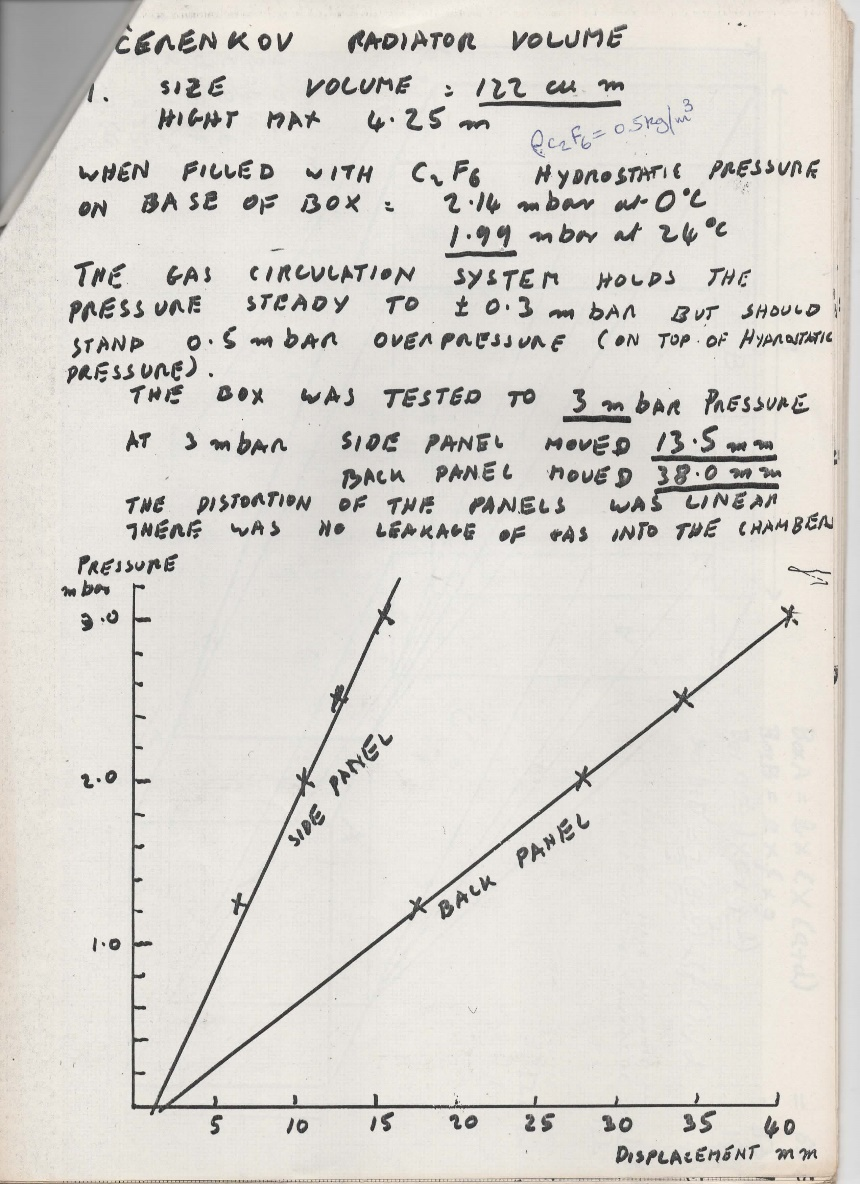 ČERENKOV RADIATOR VOLUME
1. SIZE VOLUME = 122 cu m
HIGHT MAX 4.25 m
ρC₂F₆ = 0.5kg/m³
WHEN FILLED WITH C₂F₆ HYDROSTATIC PRESSURE
ON BASE OF BOX = 2.14 mbar at 0°C
1.99 mbar at 24°C
THE GAS CIRCULATION SYSTEM HOLDS THE
PRESSURE STEADY TO ± 0.3 mBAR BUT SHOULD
STAND 0.5 mBAR OVERPRESSURE (ON TOP OF HYDROSTATIC
PRESSURE).
THE BOX WAS TESTED TO 3 mbar PRESSURE
AT 3 mBAR SIDE PANEL MOVED 13.5 mm
BACK PANEL MOVED 38.0 mm
THE DISTORTION OF THE PANELS WAS LINEAR
THERE WAS NO LEAKAGE OF GAS INTO THE CHAMBER
PRESSURE
mbar
3.0
2.0
1.0
SIDE PANEL
BACK PANEL
5 10 15 20 25 30 35 40
DISPLACEMENT mm